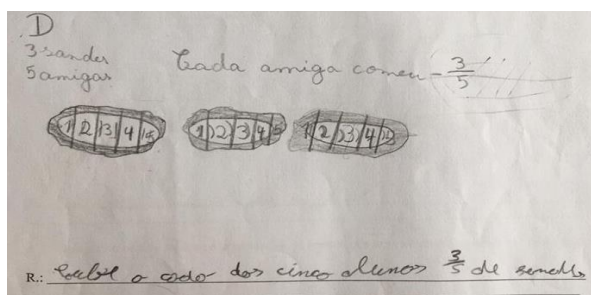 D
3 sandes
5 amigas
Cada amiga comeu - 3/5
1 2 3 4 5
1 2 3 4 5
1 2 3 4 5
R.: Coube a cada dos cinco alunos 3/5 de